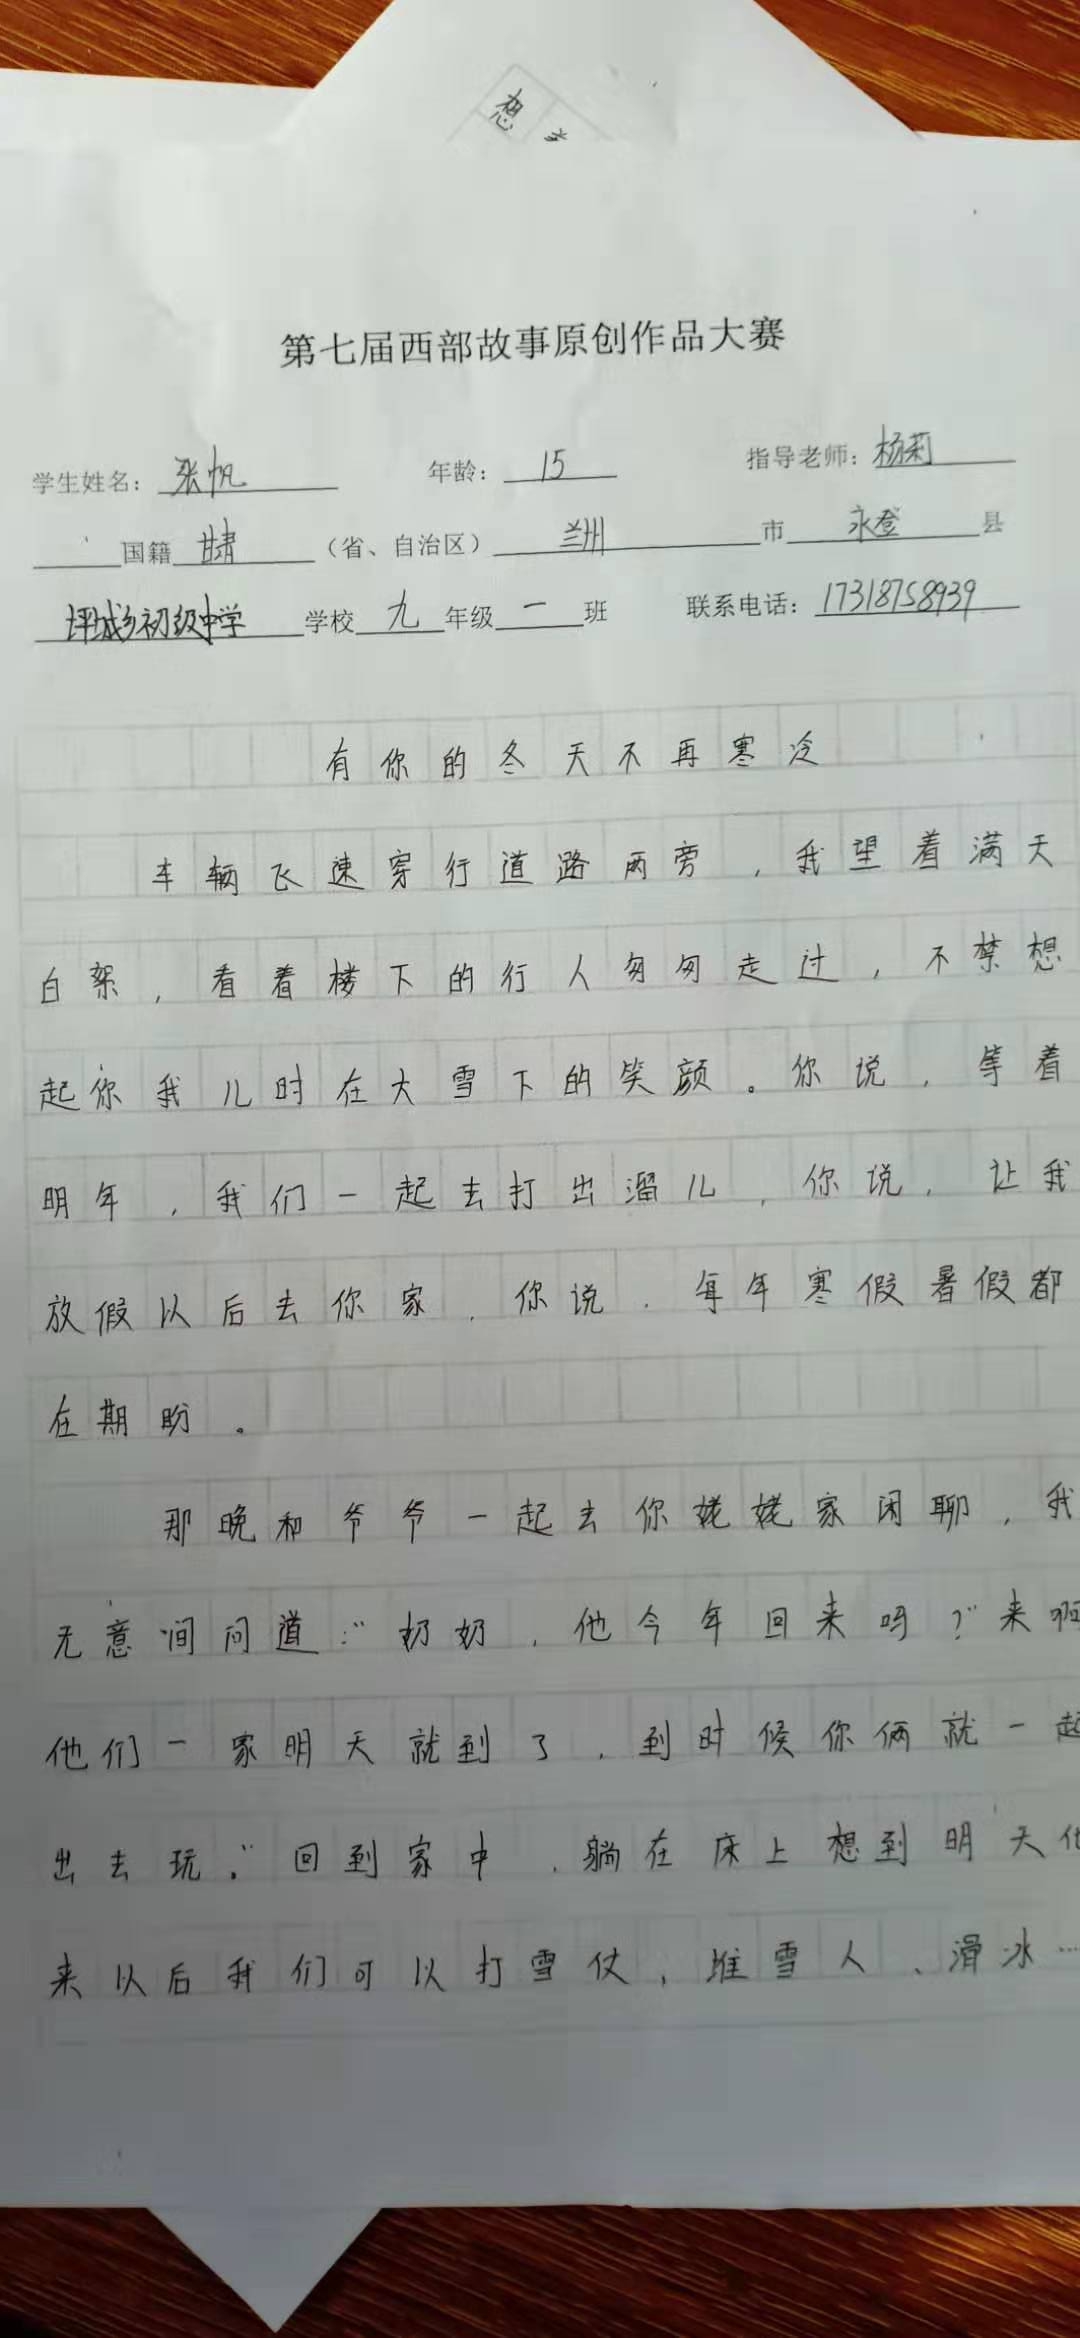 想
第七届西部故事原创作品大赛
学生姓名：张帆 年龄：15 指导老师：杨莉
国籍 甘肃（省、自治区）兰州市永登县
坪城乡初级中学 学校 九年级一班 联系电话：17318758939
有你的冬天不再寒冷
车辆飞速穿行道路两旁，我望着满天
白絮，看着楼下的行人匆匆走过，不禁想
起你我儿时在大雪下的笑颜。你说，等着
明年，我们一起去打出溜儿，你说，让我
放假以后去你家，你说，每年寒假暑假都
在期盼。
那晚和爷爷一起去你姥姥家闲聊，我
无意间问道："奶奶，他今年回来吗？"来啊
他们一家明天就到了，到时候你俩就一起
出去玩。"回到家中，躺在床上想到明天他
来以后我们可以打雪仗，堆雪人、滑冰…